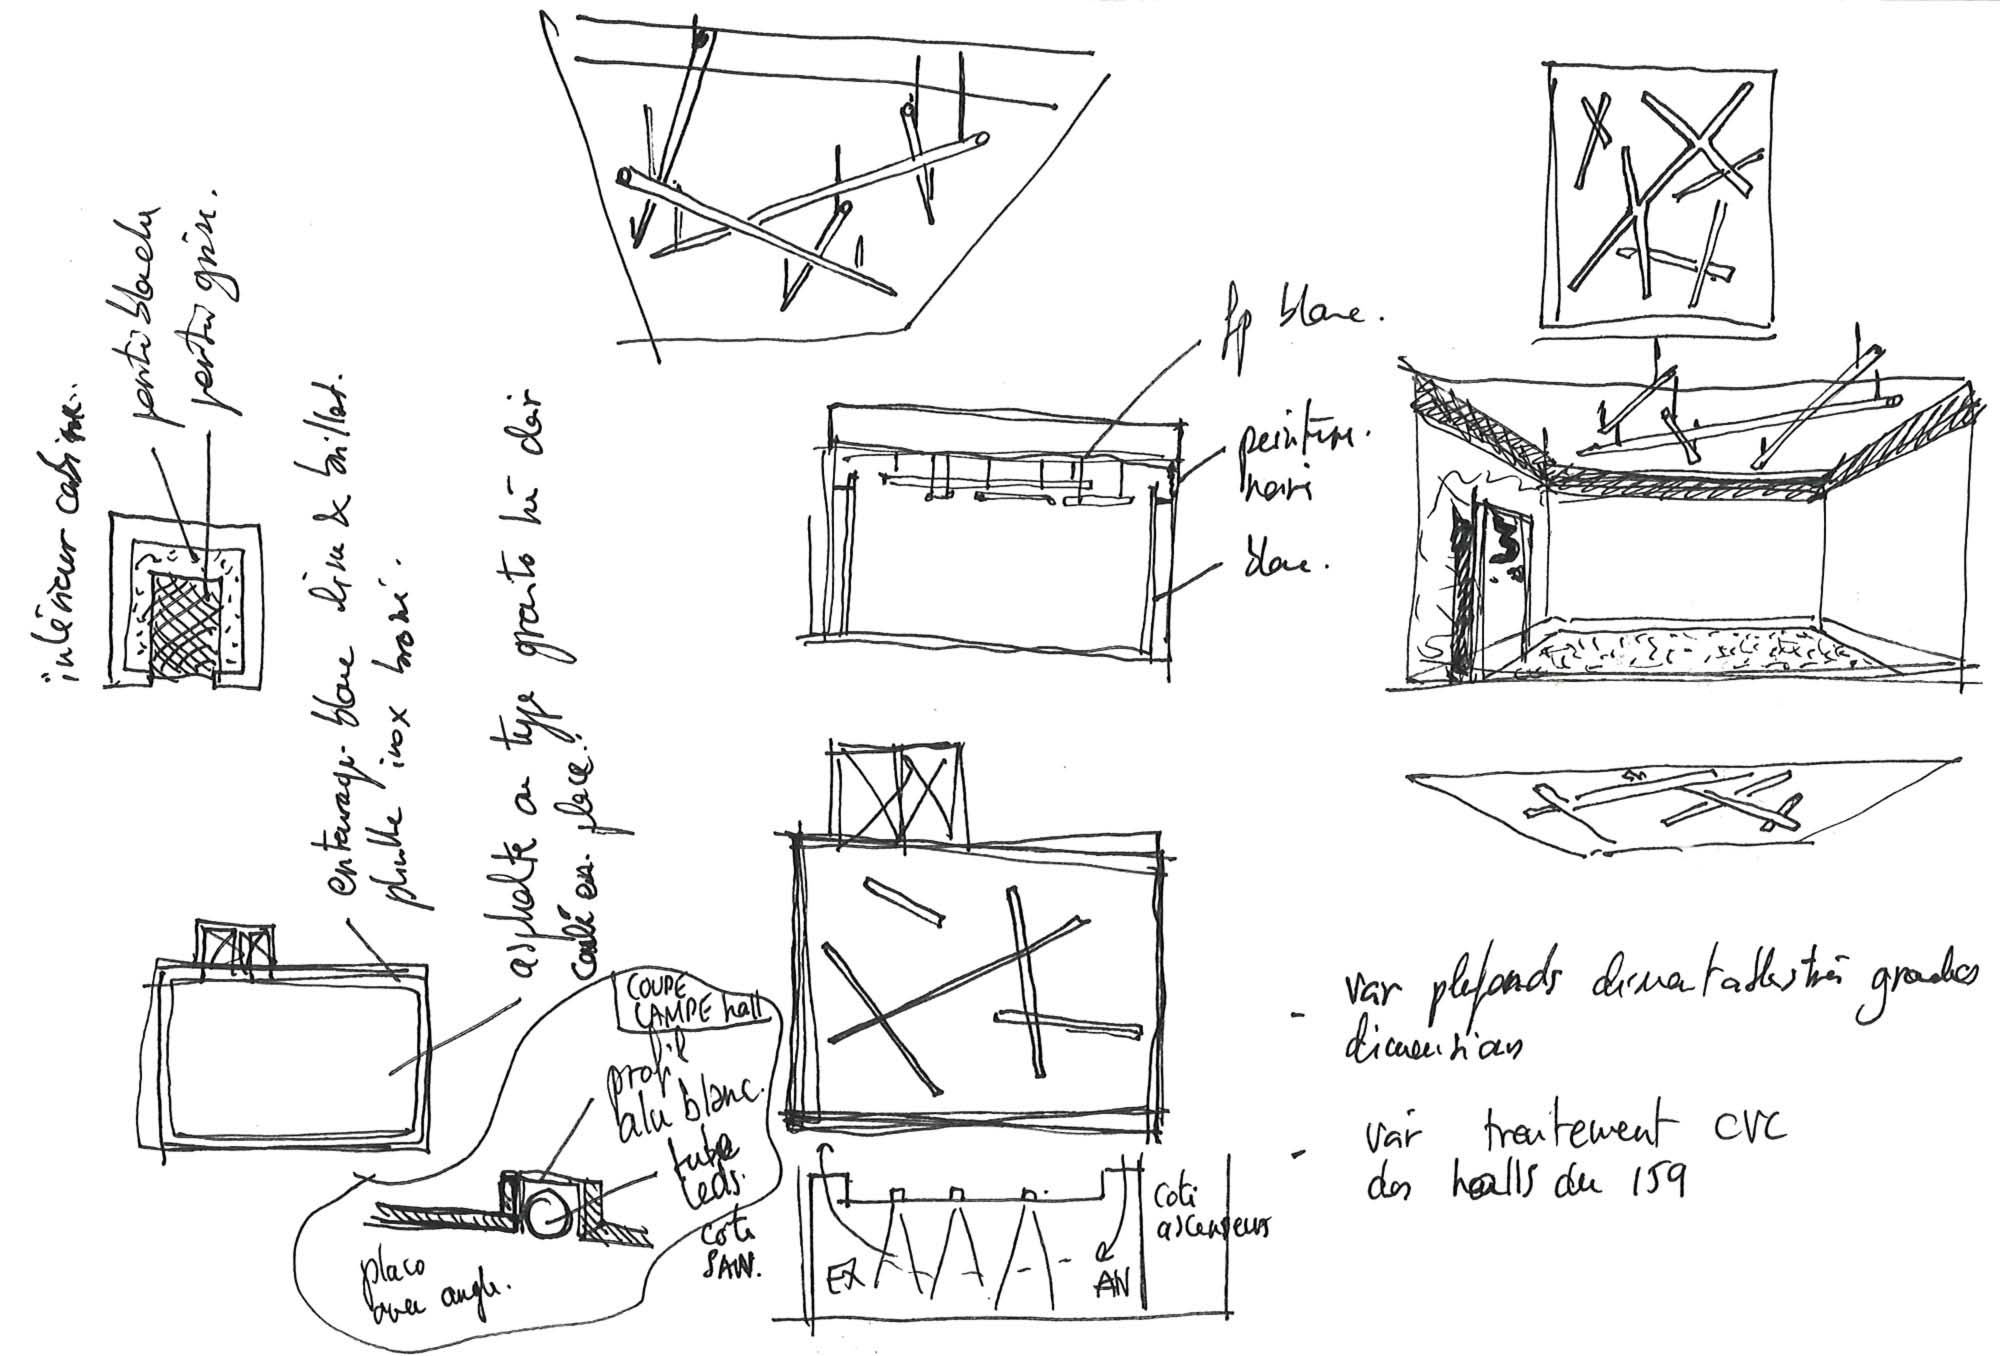 intérieur cabine.
partie blache
partie grise.
entourage blanc lisse & brillant.
plinthe inox brossé.
asphalte ou type granito très clair
coulé en place.
fp blanc.
peinture.
noire
blanc.
COUPE
LAMPE hall
profil
alu blanc.
tube
Leds.
placo
avec angle.
coté
SAW.
EX
AN
coté
ascenseurs
- voir plafonds démontables très grandes
dimensions
- voir traitement CVC
des halls du 159